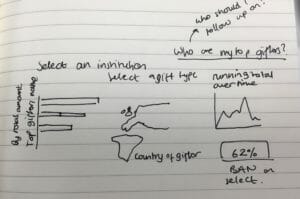 who should I
follow up on?
Who are my top giftors?
Select an institution
Select a gift type
running total
over time
By total amount
Top giftors name
country of giftor
62%
BAN on
select.